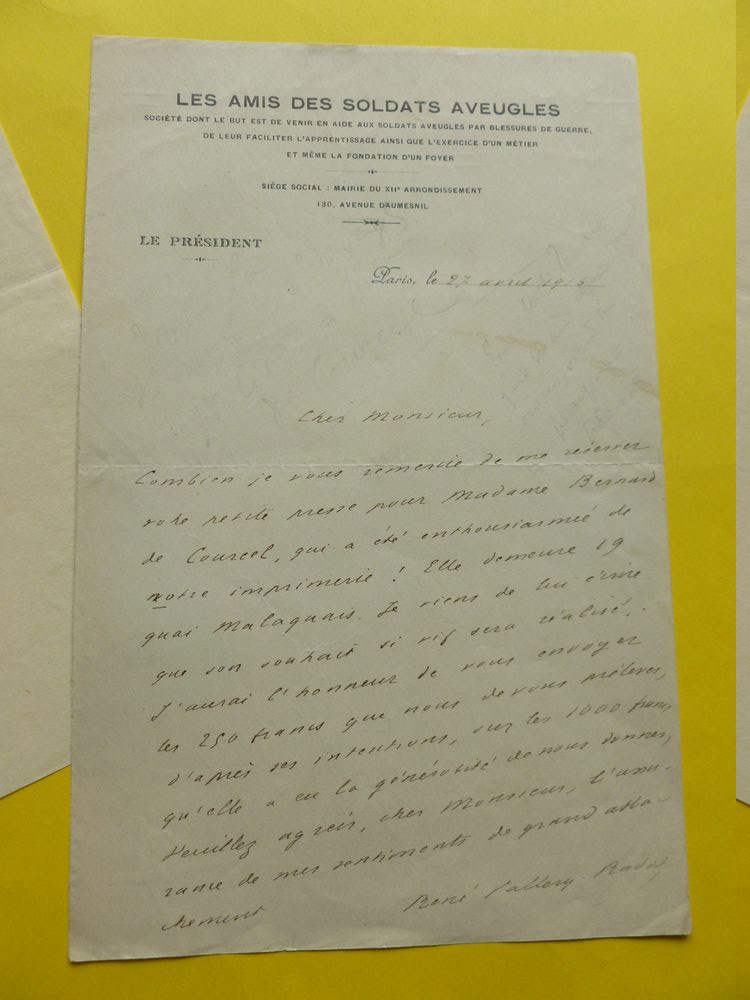 LES AMIS DES SOLDATS AVEUGLES
SOCIÉTÉ DONT LE BUT EST DE VENIR EN AIDE AUX SOLDATS AVEUGLES PAR BLESSURES DE GUERRE,
DE LEUR FACILITER L'APPRENTISSAGE AINSI QUE L'EXERCICE D'UN MÉTIER
ET MÊME LA FONDATION D'UN FOYER
SIÈGE SOCIAL : MAIRIE DU XIIe ARRONDISSEMENT
130, AVENUE DAUMESNIL
LE PRÉSIDENT
Paris, le 27 avril 1916
Cher Monsieur,
Combien je vous remercie de me réserver
votre petite presse pour Madame Bernard
de Courcel, qui a été enthousiasmée de
notre imprimerie ! Elle demeure 19
quai Malaquais. Je viens de lui écrire
que son souhait si vif sera réalisé.
J'aurai l'honneur de vous envoyer
les 250 francs que nous devons prélever,
d'après ses intentions, sur les 1000 francs
qu'elle a eu la générosité de nous donner,
Veuillez agréer, cher Monsieur, l'assu-
rance de mes sentiments de grand atta-
chement
René Vallery-Radot